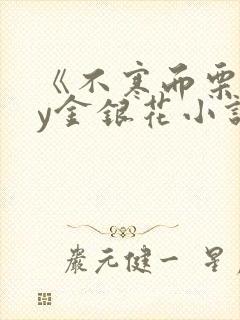 《不寒而栗
y金银花小説
嚴元健一 星